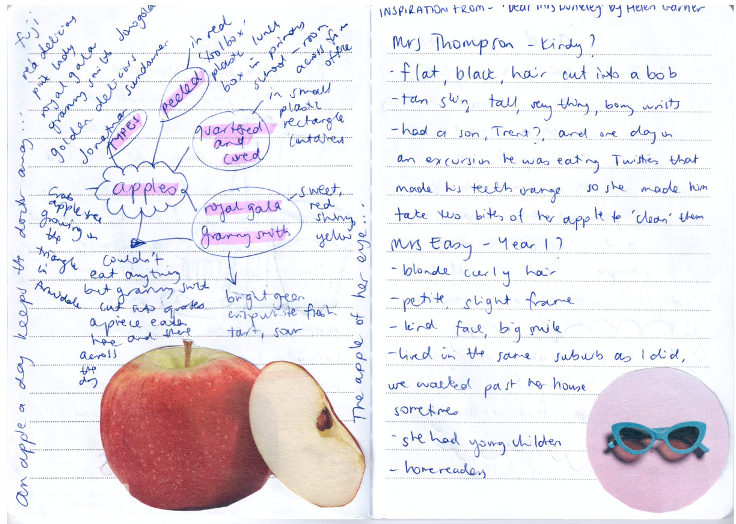 an apple a day keeps the doctor away...
fuji
red delicious
pink lady
royal gala
granny smith
golden delicious
Jonathan
sundowner
TYPES
peeled
in red
'toolbox'
plastic lunch
box in primary
school – room
across from
office
quartered
and
cored
in small
plastic
rectangle
container
apples
royal gala
granny smith
sweet,
red
shiny
yellow
bright green
crisp white fresh
tart, sour
Crab
apple tree
growing in
the
triangle
in
Armidale
Couldn't
eat anything
but granny smith
cut into quarters
a piece eaten
here and there
across
the
day
The apple of her eye...
INSPIRATION FROM - 'Dear Mrs Dunkley' by Helen Garner
Mrs Thompson - Kindy?
- flat, black, hair cut into a bob
- tan skin, tall, very thin, bony wrists
- had a son, Trent?, and one day on
an excursion he was eating Twisties that
made his teeth orange so she made him
take two bites of her apple to 'clean' them
Mrs Easy - Year 1?
- blonde curly hair
- petite slight frame
- kind face, big smile
- lived in the same suburb as I did,
we walked past her house
sometimes
- she had young children
- home readers